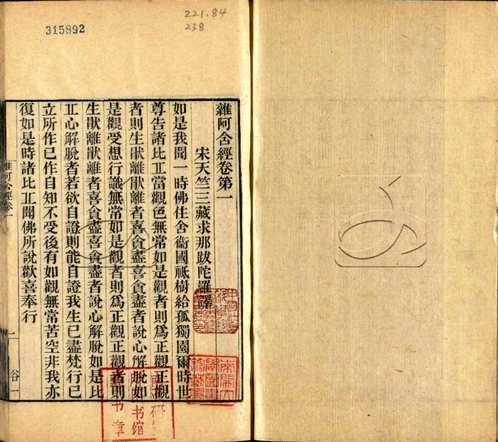 315892
221.84
238
雜阿含經卷第一
宋天竺三藏求那跋陀羅譯
如是我聞一時佛住舍衛國祇樹給孤獨園爾時世
尊告諸比丘當觀色無常如是觀者則為正觀正觀
者則生猒離猒離者喜貪盡喜貪盡者說心解脫如
是觀受想行識無常如是觀者則為正觀正觀者則
生猒離猒離者喜貪盡喜貪盡者說心解脫如是比
丘心解脫者若欲自證則能自證我生已盡梵行已
立所作已作自知不受後有如觀無常苦空非我亦
復如是時諸比丘聞佛所說歡喜奉行
雜阿含經卷一
一
谷一